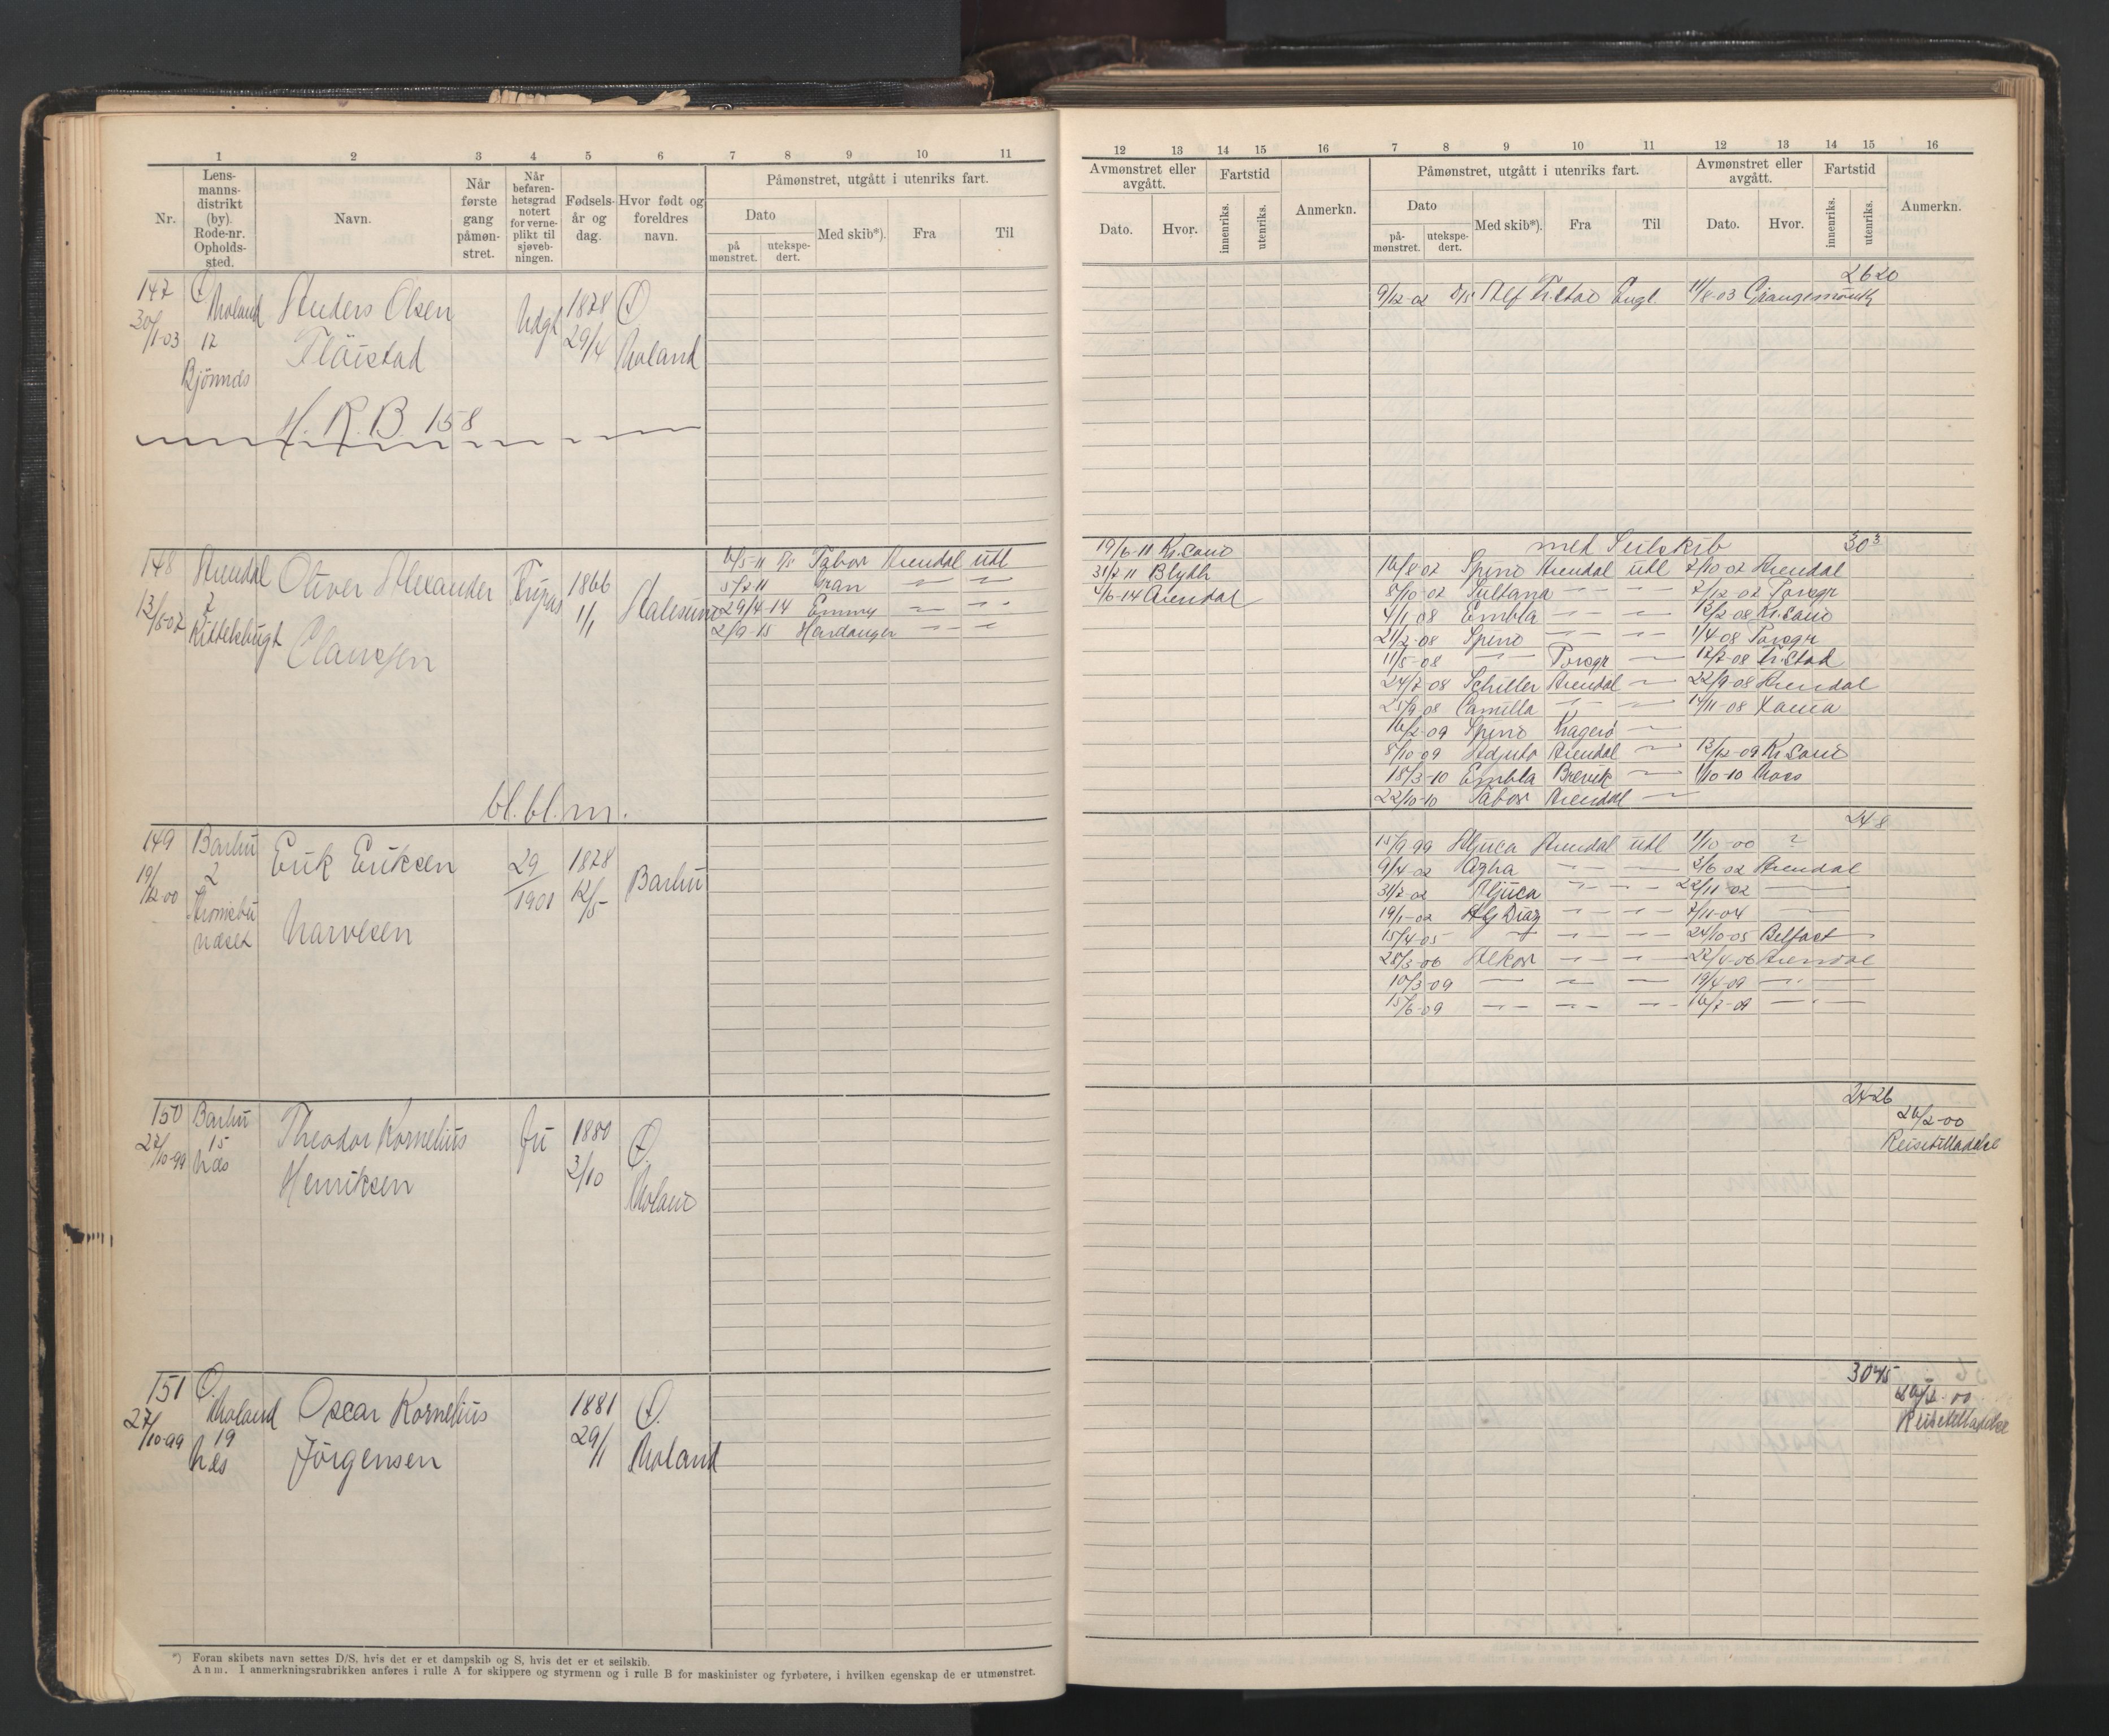 1 2 3 4 5 6 7 8 9 10 11
Nr.
Lens-
manns-
distrikt
(by).
Rode-nr.
Opholds-
sted.
Navn.
Når
første
gang
påmøn-
stret.
Når
befaren-
hetsgrad
notert
for verne-
plikt til
sjøveb-
ningen.
Fødsels-
år og
dag.
Hvor født og
foreldres
navn.
Påmønstret, utgått i utenriks fart.
Dato
på
mønstret.
utekspe-
dert.
Med skib*).
Fra
Til
147 Ø
Moland Anders Olsen Udgt 1878 Ø
30/1-03 12 Flöistad 29/4 Moland
Bjönnds
H. R. B. 158
148 Arendal Oliver Alexander Fripas 1866
13/5-07 7 Clausen 1/1
Kittelsbugt
bl. bl. m.
16/5-11 D/S Tabor Arendal utl
5/7-11 Gran — —
29/4-14 Emmy — —
2/9-15 Hardanger — —
149 Barbu Erik Eriksen 29/1901 1878 Barbu
19/12-00 2 Narvesen 12/5
150 Barbu Theodor Kornelius fri 1880 Ø.
27/10-99 15 Henriksen 3/10 Moland
Næs
151 Ø.
Moland Oscar Kornelius 1881 Ø.
27/10-99 19 Jörgensen 29/1 Moland
Næs
*) Foran skibets navn settes D/S, hvis det er et dampskib og S, hvis det er et seilskib.
Anm. I anmerkningsrubrikken anføres i rulle A for skippere og styrmenn og i rulle B for maskinister og fyrbøtere, i hvilken egenskap de er utmønstret.
12 13 14 15 16 7 8 9 10 11 12 13 14 15 16
Avmønstret eller
avgått.
Dato.
Hvor.
Fartstid
innenriks.
utenriks.
Anmerkn.
Påmønstret, utgått i utenriks fart.
Dato
på-
mønstret.
utekspe-
dert.
Med skib*).
Fra
Til
Avmønstret eller
avgått.
Dato.
Hvor.
Fartstid
innenriks.
utenriks.
Anmerkn.
2620
9/12-02 D/S Alf Engl. 11/8-03 Grangemouth
19/6-11 Kr.sand
31/7-11 Blyth
4/6-14 Arendal
med Seilskib 303
16/8-07 Speno Arendal utl 7/10-07 Arendal
8/10-07 Sultana — — 7/12-07 Porsgr
4/1-08 Embla — — 12/2-08 Kr.sand
21/2-08 Speno — — 1/4-08 Porsgr
11/5-08 — Porsgr — 17/7-08 Fr.stad
24/7-08 Schiller Arendal — 22/9-08 Arendal
25/9-08 Camilla — — 14/11-08
16/2-09 Speno Kragerö —
8/10-09 Adjuto Arendal — 12/12-09 Kr.sand
18/3-10 Embla Brevik — 1/10-10 Moss
22/10-10 Tabor Arendal —
248
15/9-99 Aljuca Arendal utl 1/10-00 ?
9/4-02 Agha — — 3/6-02 Arendal
31/7-02 Aljuca — — 22/11-02 —
19/1-02 — — 7/11-04 —
15/4-05 — — — 24/10-05 Belfast
28/3-06 Alkor — — 27/4-06 Arendal
10/3-09 — — — 19/4-09 —
15/6-09 — — — 16/7-09 —
2426
26/2-00
Reisetilladelse
3045
26/2-00
Reisetilladelse